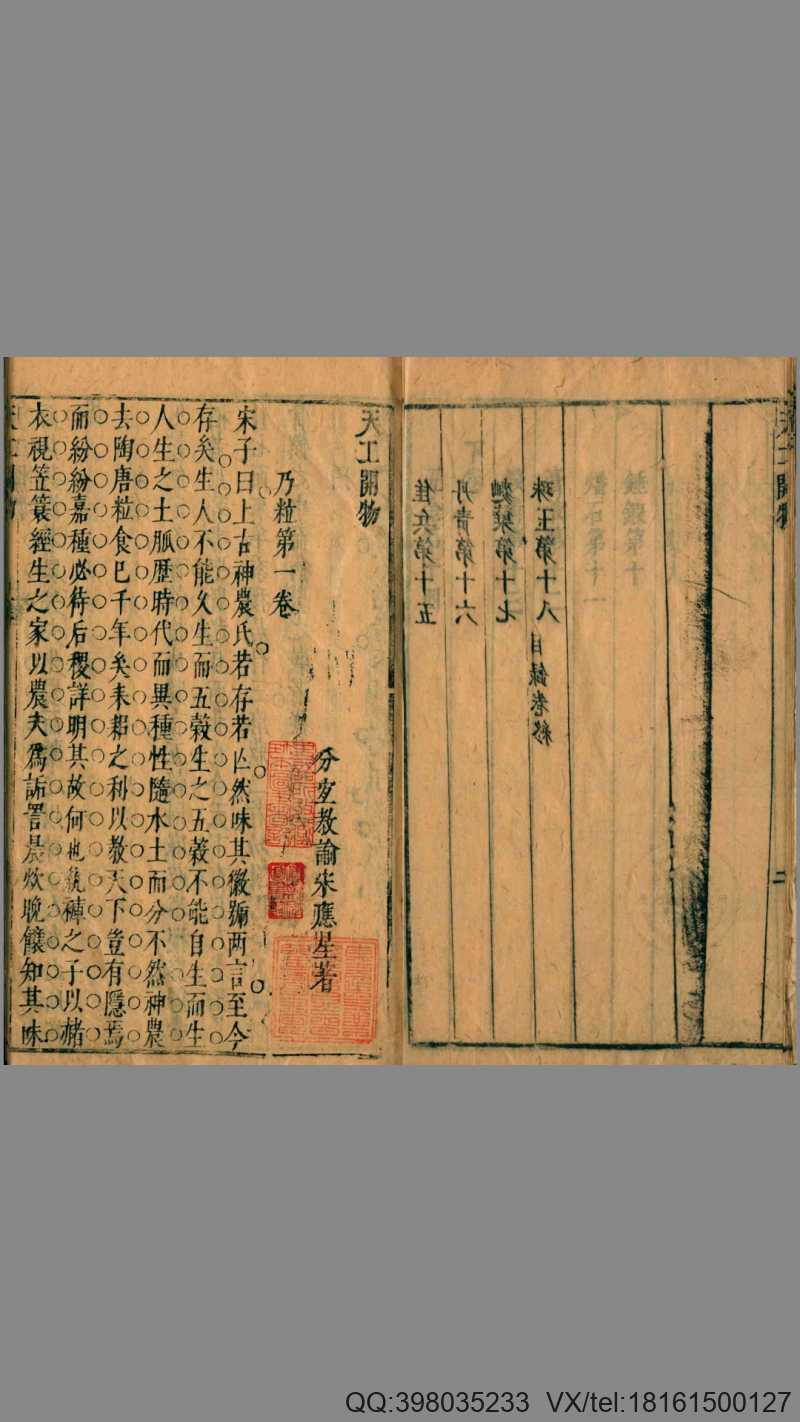 天工開物
佳兵第十五
丹青第十六
麴櫱第十七
珠玉第十八 目録卷終
二
天工開物
分宜教諭宋應星著
乃粒第一卷
宋子曰上古神農氏若存若亡然味其徽號两言至今
存矣生人不能久生而五穀生之五穀不能自生而生
人生之土脈歷時代而異種性隨水土而分不然神農
去陶唐粒食已千年矣耒耜之利以教天下豈有隱焉
而紛紛嘉種必待后稷詳明其故何也紈褲之子以赭
衣視笠簑經生之家以農夫爲詬詈晨炊晚饟知其味
QQ:398035233 VX/tel:18161500127